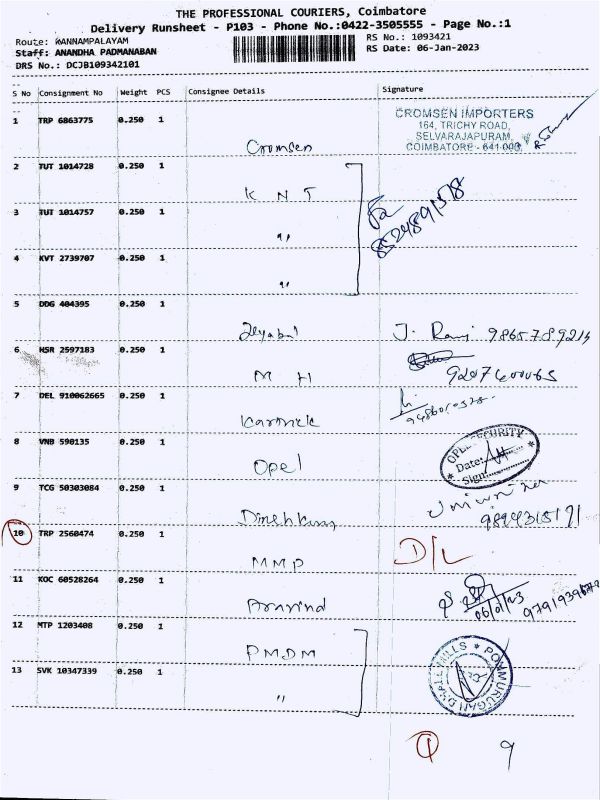 THE PROFESSIONAL COURIERS, Coimbatore
Delivery Runsheet - P103 - Phone No.:0422-3505555 - Page No.:1
Route: KANNAMPALAYAM
RS No.: 1093421
Staff: ANANDHA PADMANABAN
RS Date: 06-Jan-2023
DRS No.: DCJB109342101
S No Consignment No Weight PCS Consignee Details Signature
1 TRP 6863775 0.250 1 Cromsen
CROMSEN IMPORTERS
164, TRICHY ROAD,
SELVARAJAPURAM,
COIMBATORE - 641 003.
2 TUT 1014728 0.250 1 K N T
3 TUT 1014757 0.250 1 "
8524891578
4 KVT 2739707 0.250 1 "
5 DDG 404395 0.250 1 J. Ramj
6 HSR 2597183 0.250 1 M H
7 DEL 910062665 0.250 1 Karthick
8 VNB 590135 0.250 1 Opel
OPEL SECURITY
Date:
Sign:
9 TCG 50303084 0.250 1 Dineshkumar
10 TRP 2560474 0.250 1 MMP D/L
11 KOC 60528264 0.250 1 Aravind 06/01/23
12 MTP 1203408 0.250 1 PMDM
13 SVK 10347339 0.250 1 "
1 9